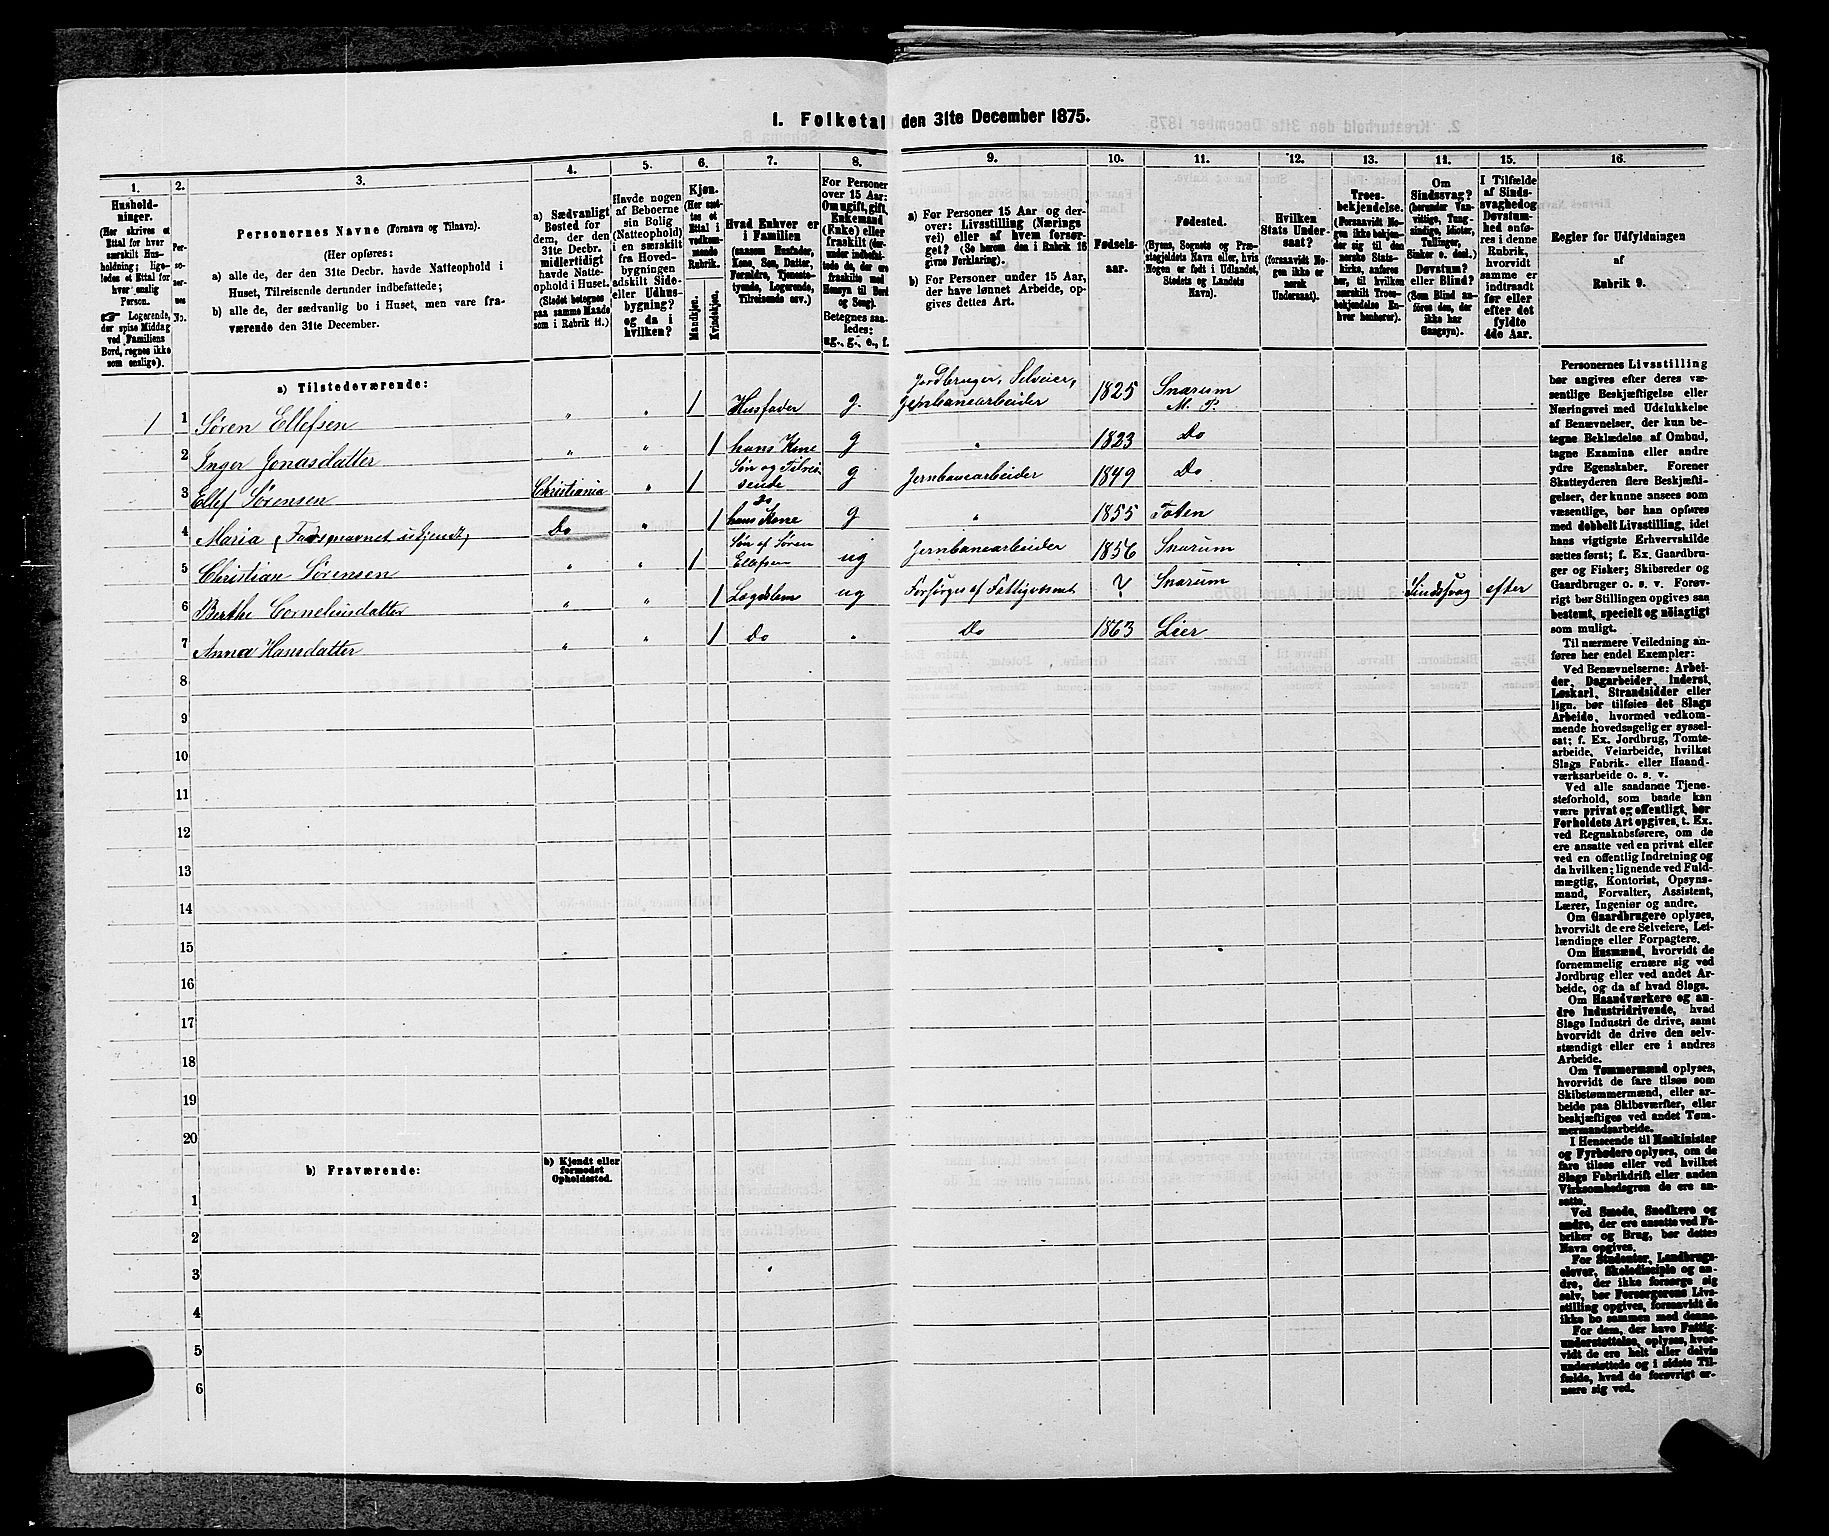 1. Folketal den 31te December 1875.
1.
2.
3.
4.
5.
6.
7.
8.
9.
10.
11.
12.
13.
14.
15.
16.
Hushold-
ninger.
(Her skrives et
Ettal for hver
særskilt Hus-
holdning; lige-
ledes et Ettal for
hver enslig
Person.
☞ Logerende,
der spise Middag
ved Familiens
Bord, regnes ikke
som enslige).
Per-
so-
ner-
nes
No.
Personernes Navne (Fornavn og Tilnavn).
(Her opføres:
a) alle de, der den 31te Decbr. havde Natteophold i
Huset, Tilreisende derunder indbefattede;
b) alle de, der sædvanlig bo i Huset, men vare fra-
værende den 31te December.
a) Sædvanligt
Bosted for
dem, der den
31te Decbr.
midlertidigt
havde Natte-
ophold i Huset.
(Stedet betegnes
paa samme Maade
som i Rubrik 11.)
Havde nogen
af Beboerne
sin Bolig
(Natteophold)
i en særskilt
fra Hoved-
bygningen
adskilt Side-
eller Udhus-
bygning?
og da i
hvilken?
Kjøn.
(Her sæt-
tes et
Ettal i
vedkom-
mende
Rubrik.
Mandkjøn.
Kvindekjøn.
Hvad Enhver er
i Familien
(saasom Husfader,
Kone, Søn, Datter,
Forældre, Tjeneste-
tyende, Logerende,
Tilreisende osv.)
For Personer
over 15 Aar:
Om ugift, gift,
Enkemand
(Enke) eller
fraskilt (der-
under indbefat-
tede de, der ere
fraskilte med
Hensyn til Bord
og Seng).
Betegnes saa-
ledes:
ug., g., e., f.
a) For Personer 15 Aar og der-
over: Livsstilling (Nærings-
vei) eller af hvem forsør-
get? (Se herom den i Rubrik 16
givne Forklaring).
b) For Personer under 15 Aar,
der have lønnet Arbeide, op-
gives dettes Art.
Fødsels-
aar.
Fødested.
(Byens, Sognets og Præ-
stegjeldets Navn eller, hvis
Nogen er født i Udlandet,
Stedets og Landets
Navn).
Hvilken
Stats Under-
saat?
(foraavidt No-
gen ikke er
norsk
Undersaat).
Troes-
bekjendelse.
(Forsaavidt No-
gen ikke bekjen-
der sig til den
norske Stats-
kirke, anføres
her, til hvilken
særskilt Troes-
bekjendelse En-
hver henhører).
Om
Sindssvag?
(herunder Van-
vittige, Tung-
sindige, Idioter,
Tullinger,
Sinker o. desl.)
Døvstum?
eller Blind?
(Som Blind an-
føres den, der
ikke har
Gangsyn).
I Tilfælde
af Sinds-
svaghed og
Døvstum-
hed anfø-
res i denne
Rubrik,
hvorvidt
samme er
indtraadt
før eller
efter det
fyldte
4de Aar.
Regler for Udfyldningen
af
Rubrik 9.
a) Tilstedeværende:
1 1 Søren Ellefsen " " 1 Husfader g. Jordbruger, Selveier, Jernbanearbeider 1825 Snarum M. P.
2 Inger Jonasdatter " " 1 hans Kone g " 1823 Do
3 Ellef Sørensen Christiania " 1 Søn og Tilreisende g Jernbanearbeider 1849 Do
4 Maria (Farsnavnet ukjendt) Do " 1 do hans Kone g " 1855 Toten
5 Christian Sørensen " " 1 Søn af Søren Ellefsen ug Jernbanearbeider 1856 Snarum
6 Berthe Corneliusdatter " " 1 Lægdslem ug Forsørges af Fattigvæsnet ? Snarum Sindssvag efter
7 Anna Hansdatter " " 1 Do " Do 1863 Lier
8
9
10
11
12
13
14
15
16
17
18
19
20
b) Fraværende:
b) Kjendt eller
formodet
Opholdssted.
1
2
3
4
5
6
Personernes Livsstilling
bør angives efter deres væ-
sentlige Beskjæftigelse eller
Næringsvei med Udelukkelse
af Benævnelser, der kun be-
tegne Beklædelse af Ombud,
tagne Examina eller andre
ydre Egenskaber. Forener
Skatteyderen flere Beskjæfti-
gelser, der kunne ansees som
væsentlige, bør han opføres
med dobbelt Livsstilling, idet
hans vigtigste Erhvervskilde
sættes først; f. Ex. Gaardbru-
ger og Fisker; Skibsreder og
Gaardbruger o. s. v. Forøv-
rigt bør Stillingen opgives saa
bestemt, specielt og nøiagtigt
som muligt.
Til nærmere Veiledning an-
føres her endel Exempler:
Ved Benævnelserne: Arbei-
der, Dagarbeider, Inderst,
Løskarl, Strandsidder eller
lign. bør tilføies det Slags
Arbeide, hvormed vedkom-
mende hovedsagelig er syssel-
sat; f. Ex. Jordbrug, Tomte-
arbeide, Veiarbeide, hvilket
Slags Fabrik- eller Haand-
værksarbeide o. s. v.
Ved alle saadanne Tjene-
steforhold, som baade kan
være privat og offentligt, bør
Forholdets Art opgives, t. Ex.
ved Regnskabsførere, om de
ere ansatte ved en privat eller
ved en offentlig Indretning og
da hvilken; lignende ved Fuld-
mægtig, Kontorist, Opsyns-
mand, Forvalter, Assistent,
Lærer, Ingeniør og andre.
Om Gaardbrugere oplyses,
hvorvidt de ere Selveiere, Lei-
lændinge eller Forpagtere.
Om Husmænd, hvorvidt de
fornemmelig ernære sig ved
Jordbrug eller ved andet Ar-
beide, og da af hvad Slags.
Om Haandværkere og an-
dre Industridrivende, hvad
Slags Industri de drive, samt
hvorvidt de drive den selv-
stændigt eller ere i andres
Arbeide.
Om Tømmermænd oplyses,
hvorvidt de fare tilsøs som
Skibstømmermænd, eller ar-
beide paa Skibsværfter, eller
beskjæftiges ved andet Tøm-
mermandsarbeide.
I Henseende til Maskinister
og Fyrbødere oplyses, om de
fare tilsøs eller ved hvilket
Slags Fabrikdrift eller anden
Virksomhedsgren de ere an-
satte.
Ved Smede, Snedkere og
andre, der ere ansatte ved Fa-
briker og Brug, bør dettes
Navn opgives.
For Studenter, Landbrugs-
elever, Skoledisciple og an-
dre, der ikke forsørge sig
selv, bør Forsørgerens Livs-
stilling opgives, forsaavidt de
ikke bo sammen med denne.
For dem, der have Fattig-
understøttelse, oplyses, hvor-
vidt de ere helt eller delvis
understøttede og i sidste Til-
fælde, hvad de forøvrigt er-
nære sig ved.